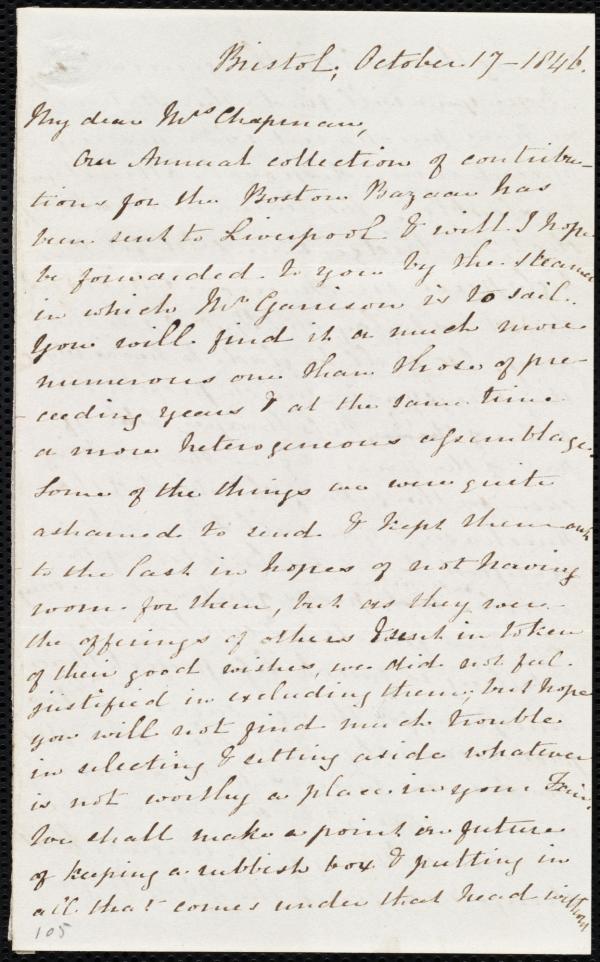 Bristol, October 17 - 1846.
My dear Mrs Chapman,
Our Annual collection of contribu-
tions for the Boston Bazaar has
been sent to Liverpool & will I hope
be forwarded to you by the steamer
in which Mr Garrison is to sail.
You will find it a much more
numerous one than those of pre-
ceeding years & at the same time
a more heterogeneous assemblage.
Some of the things we were quite
ashamed to send & kept them out
to the last in hopes of not having
room for them, but as they were
the offerings of others & sent in token
of their good wishes, we did not feel
justified in excluding them, but hope
you will not find much trouble
in selecting & setting aside whatever
is not worthy a place in your Fair.
We shall make a point in future
of keeping a rubbish box & putting in
all that comes under that head without
105